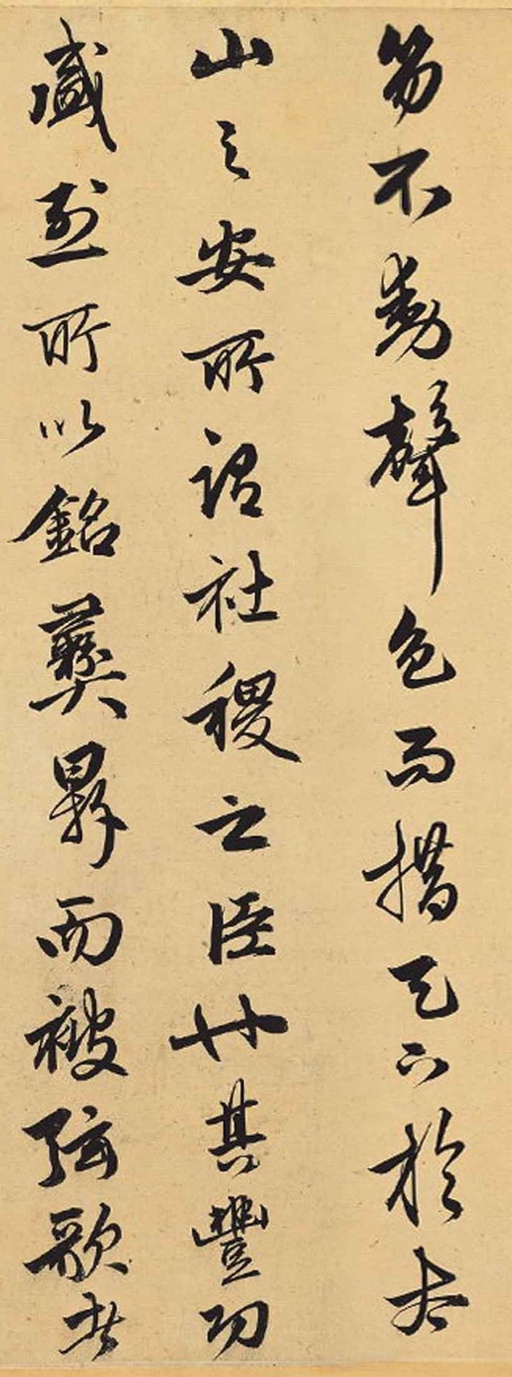 笏不動聲色而措天下於太
山之安所謂社稷之臣其豐功
盛烈所以銘彝鼎而被弦歌者